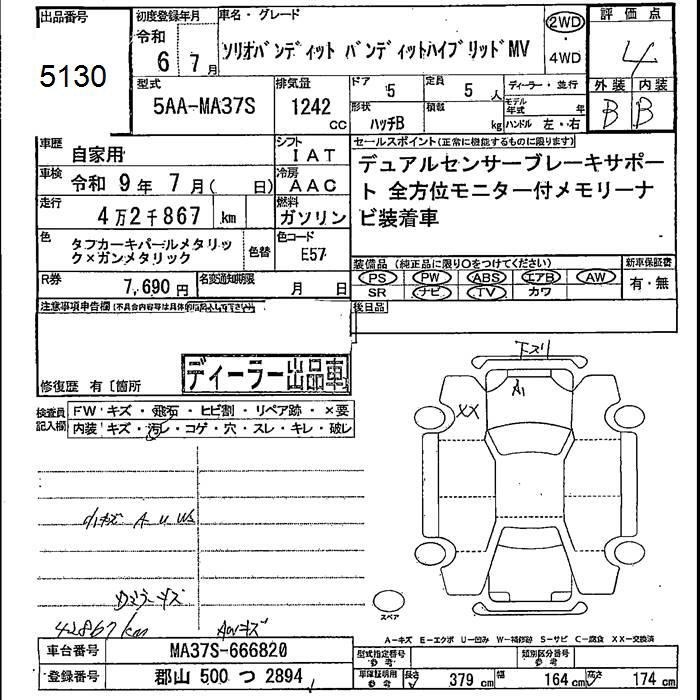 出品番号
5130
初度登録年月
令和
6年 7月
車名・グレード
ソリオバンディット バンディットハイブリッドMV
2WD
・
4WD
評価点
4
外装 内装
B B
型式
5AA-MA37S
排気量
1242
CC
ドア 5
定員 5人
形状
ハッチB
積載
kg
ディーラー・並行
モデル年式 年
ハンドル 左・右
車歴
自家用
シフト
IAT
車検
令和 9年 7月( 日)
冷房
AAC
走行
4万2千867 km
燃料
ガソリン
色
タフカーキパールメタリック×ガンメタリック
色替
色コード
E57
R券
7,690 円
名変通知期限
月 日
セールスポイント(正常に機能するものに限ります)
デュアルセンサーブレーキサポー
ト 全方位モニター付メモリーナ
ビ装着車
装備品 (純正品に限り○をつけてください)
PS PW ABS エアB AW
SR ナビ TV カワ
新車保証書
有・無
後日品
注意事項申告欄
修復歴 有〔箇所
ディーラー出品車
検査員
記入欄
FW キズ・飛石・ヒビ割・リペア跡・×要
内装 キズ・汚レ・コゲ・穴・スレ・キレ・破レ
下スリ
A1
XX
小キズ A U W
42867km
AWキズ
スペア
A-キズ E-エクボ U-凹み W-補修跡 S-サビ C-腐食 XX-交換済
車台番号
MA37S-666820
登録番号
郡山 500 つ 2894
型式指定番号
参考
類別区分番号
参考
車検証明用
参考
長さ 379 cm
幅 164 cm
高さ 174 cm